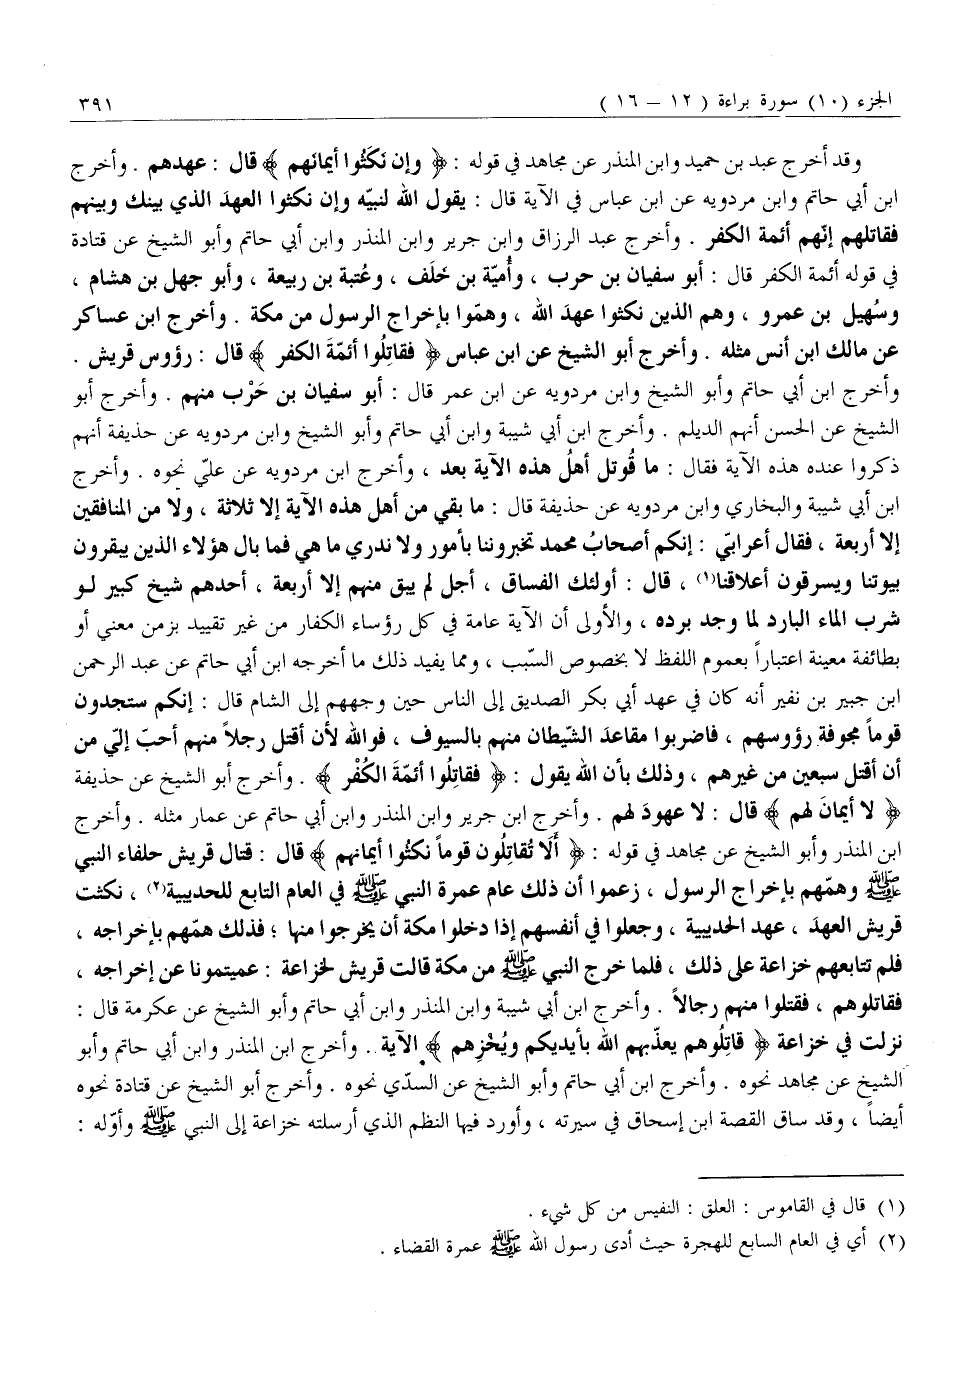 الجزء (١٠) سورة براءة ( ١٢ – ١٦ ) ٣٩١
وقد أخرج عبد بن حميد وابن المنذر عن مجاهد في قوله : ﴿ وإن نَكَثُوا أيمانَهم ﴾ قال : عهدهم . وأخرج
ابن أبي حاتم وابن مردويه عن ابن عباس في الآية قال : يقول الله لنبيّه وإن نكثوا العهدَ الذي بينك وبينهم
فقاتلهم إنّهم أئمة الكفر . وأخرج عبد الرزاق وابن جرير وابن المنذر وابن أبي حاتم وأبو الشيخ عن قتادة
في قوله أئمة الكفر قال : أبو سفيان بن حرب ، وأُميّة بن خلَف ، وعُتبة بن ربيعة ، وأبو جهل بن هشام ،
وسُهيل بن عمرو ، وهم الذين نكثوا عهدَ الله ، وهمّوا بإخراج الرسول من مكة . وأخرج ابن عساكر
عن مالك ابن أنس مثله . وأخرج أبو الشيخ عن ابن عباس ﴿ فقاتِلُوا أئمّةَ الكفر ﴾ قال : رؤوس قريش .
وأخرج ابن أبي حاتم وأبو الشيخ وابن مردويه عن ابن عمر قال : أبو سفيان بن حَرْب منهم . وأخرج أبو
الشيخ عن الحسن أنهم الديلم . وأخرج ابن أبي شيبة وابن أبي حاتم وأبو الشيخ وابن مردويه عن حذيفة أنهم
ذكروا عنده هذه الآية فقال : ما قُوتل أهلُ هذه الآية بعد ، وأخرج ابن مردويه عن عليّ نحوه . وأخرج
ابن أبي شيبة والبخاري وابن مردويه عن حذيفة قال : ما بقي من أهل هذه الآية إلا ثلاثة ، ولا من المنافقين
إلا أربعة ، فقال أعرابيّ : إنكم أصحابُ محمد تخبروننا بأمور ولا ندري ما هي فما بال هؤلاء الذين يبقرون
بيوتنا ويسرقون أعلاقنا(١) ، قال : أولئك الفساق ، أجل لم يبق منهم إلا أربعة ، أحدهم شيخ كبير لـو
شرب الماء البارد لما وجد برده ، والأولى أن الآية عامة في كل رؤساء الكفار من غير تقييد بزمن معني أو
بطائفة معينة اعتباراً بعموم اللفظ لا بخصوص السّبب ، ومما يفيد ذلك ما أخرجه ابن أبي حاتم عن عبد الرحمن
ابن جبير بن نفير أنه كان في عهد أبي بكر الصديق إلى الناس حين وجههم إلى الشام قال : إنكم ستجدون
قوماً مجوفة رؤوسهم ، فاضربوا مقاعدَ الشّيطان منهم بالسيوف ، فوالله لأن أقتل رجلاً منهم أحبّ إليّ من
أن أقتل سبعين من غيرهم ، وذلك بأن الله يقول : ﴿ فقاتِلُوا أئمّةَ الكُفْر ﴾ . وأخرج أبو الشيخ عن حذيفة
﴿ لا أيمانَ لهم ﴾ قال : لا عهودَ لهم . وأخرج ابن جرير وابن المنذر وابن أبي حاتم عن عمار مثله . وأخرج
ابن المنذر وأبو الشيخ عن مجاهد في قوله : ﴿ أَلَا تُقاتِلُون قوماً نكثُوا أيمانهم ﴾ قال : قتال قريش حلفاء النبي
ﷺ وهمّهم بإخراج الرسول ، زعموا أن ذلك عام عمرة النبي ﷺ في العام التابع للحديبية(٢) ، نكثت
قريش العهدَ ، عهد الحديبية ، وجعلوا في أنفسهم إذا دخلوا مكة أن يخرجوا منها ؛ فذلك همّهم بإخراجه ،
فلم تتابعهم خزاعة على ذلك ، فلما خرج النبي ﷺ من مكة قالت قريش لخزاعة : عميتمونا عن إخراجه ،
فقاتلوهم ، فقتلوا منهم رجالاً . وأخرج ابن أبي شيبة وابن المنذر وابن أبي حاتم وأبو الشيخ عن عكرمة قال :
نزلت في خزاعة ﴿ قاتِلُوهم يعذّبهم الله بأيديكم ويُخْزِهم ﴾ الآية . وأخرج ابن المنذر وابن أبي حاتم وأبو
الشيخ عن مجاهد نحوه . وأخرج ابن أبي حاتم وأبو الشيخ عن السدّي نحوه . وأخرج أبو الشيخ عن قتادة نحوه
أيضاً ، وقد ساق القصة ابن إسحاق في سيرته ، وأورد فيها النظم الذي أرسلته خزاعة إلى النبي ﷺ وأوّله :
(١) قال في القاموس : العلق : النفيس من كل شيء .
(٢) أي في العام السابع للهجرة حيث أدى رسول الله ﷺ عمرة القضاء .